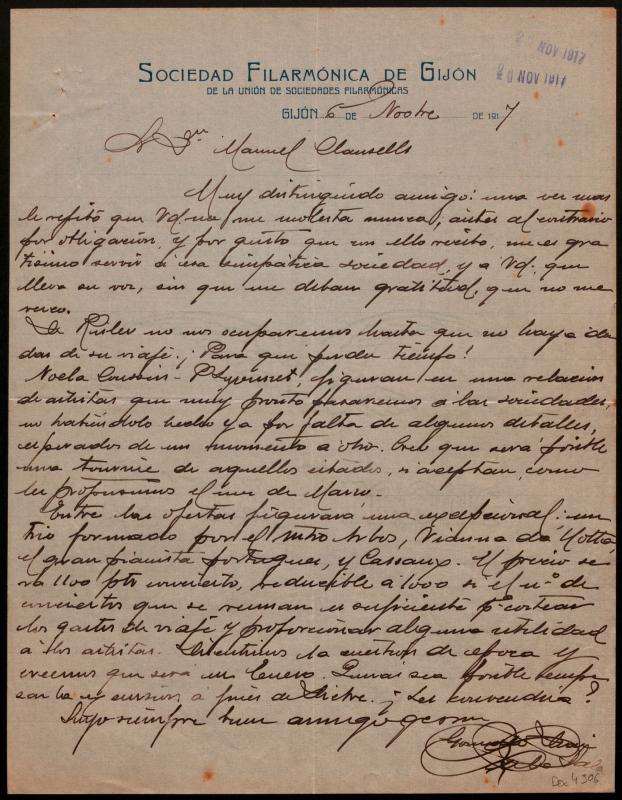 20 NOV 1917
20 NOV 1917
SOCIEDAD FILARMÓNICA DE GIJÓN
DE LA UNIÓN DE SOCIEDADES FILARMÓNICAS
GIJÓN 6 DE Novbre DE 1917
Sr Manuel Clausells
Muy distinguido amigo: una vez mas
le repito que Vd. no me molesta nunca; antes al contrario
por obligación, y por gusto que en ello recibo, me es gra
tisimo servir á esa simpática sociedad, y á Vd. que
lleva su voz, sin que me deban gratitud, que no me
rezco.
De Risler no nos ocuparemos hasta que no haya du
das de su viaje. ¡Para que perder tiempo!
Noela Cousin - figuran en una relacion
de artistas que muy pronto pasaremos á las sociedades,
no habiendolo hecho ya por falta de algunos detalles,
esperados de un momento á otro. Creo que será posible
una tournée de aquellos citados, si aceptan, como
les proponemos el mes de Marzo.
Entre las ofertas figurará una excepcional: un
trio formado por el mtro Arbos, Vianna da Motta
el gran pianista portugues, y Cassaux. El precio se
rá 1100 pts concierto, reducible á 1000 si el nº de
conciertos que se reunan es suficiente pª costear
los gastos de viaje y proporcionar alguna utilidad
á los artistas. Discutimos la cuestion de epoca y
creemos que será en Enero. Quizás sea posible empe
zar la excursion á fines de Dicbre. ¿Les convendria?
Suyo siempre buen amigo q e s m
Doc 4.306